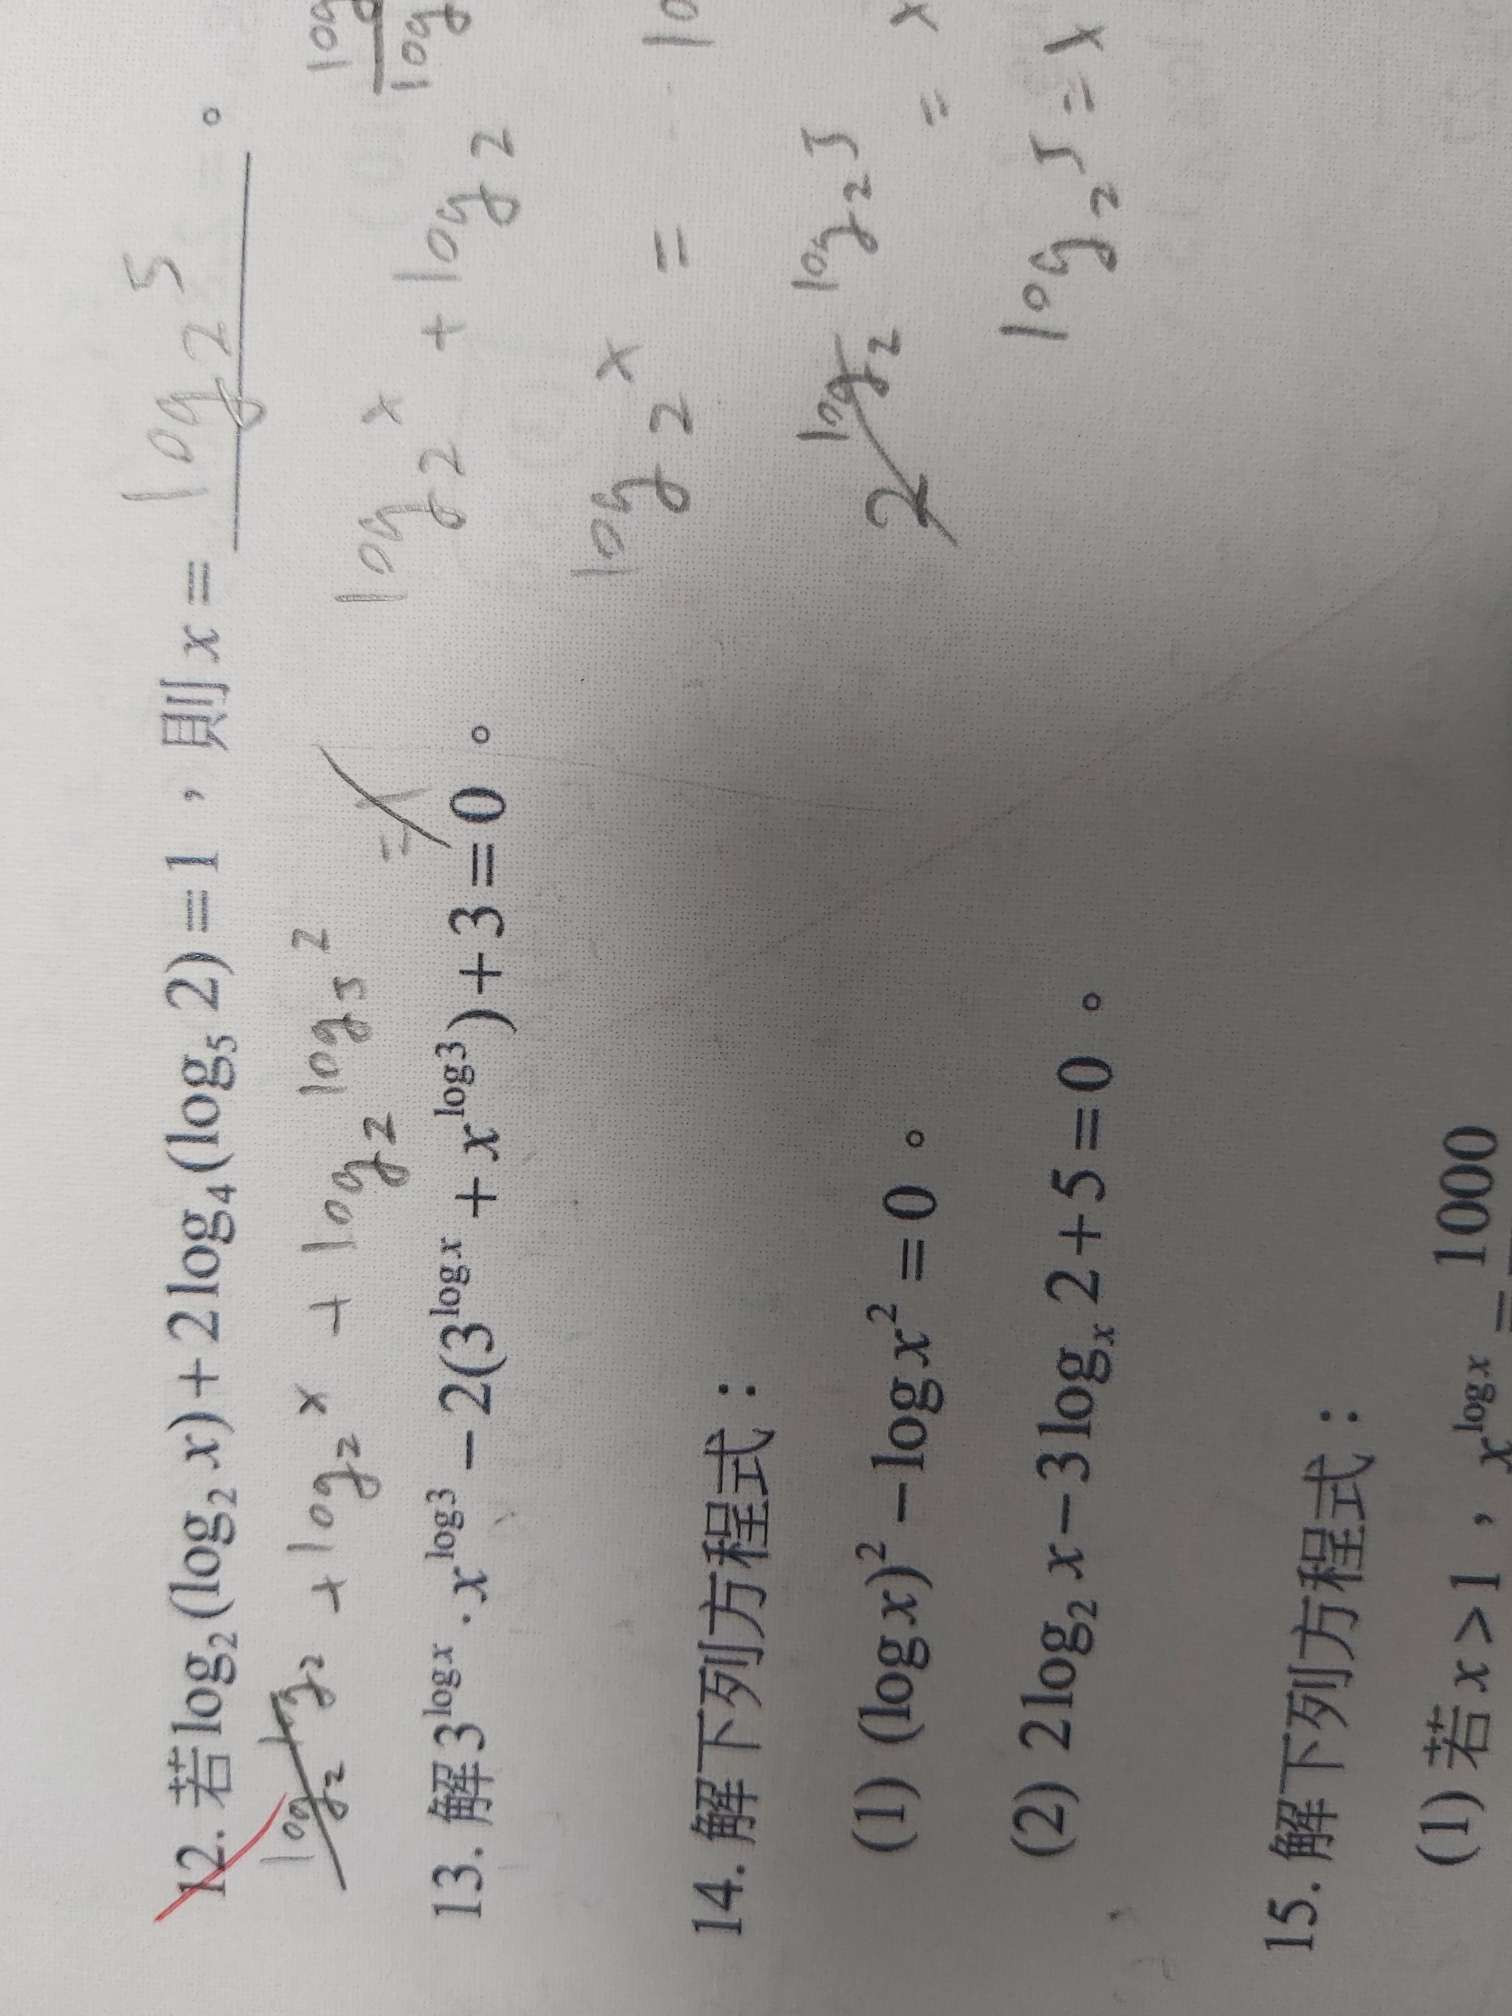 12. 若 log₂(log₂ x) + 2log₄(log₅ 2) = 1，則 x = log₂5 。
log₂ log₂ + log₂x + log₂ log₅2
= 1
log₂x + log₂
log
log
log₂x =
2 log₂ log₂5 = x
log₂5 = x
13. 解 3^{log x} · x^{log 3} − 2(3^{log x} + x^{log 3}) + 3 = 0 。
14. 解下列方程式：
(1) (log x)² − log x² = 0 。
(2) 2log₂ x − 3logₓ 2 + 5 = 0 。
15. 解下列方程式：
(1) 若 x > 1，x^{log x} = 1000